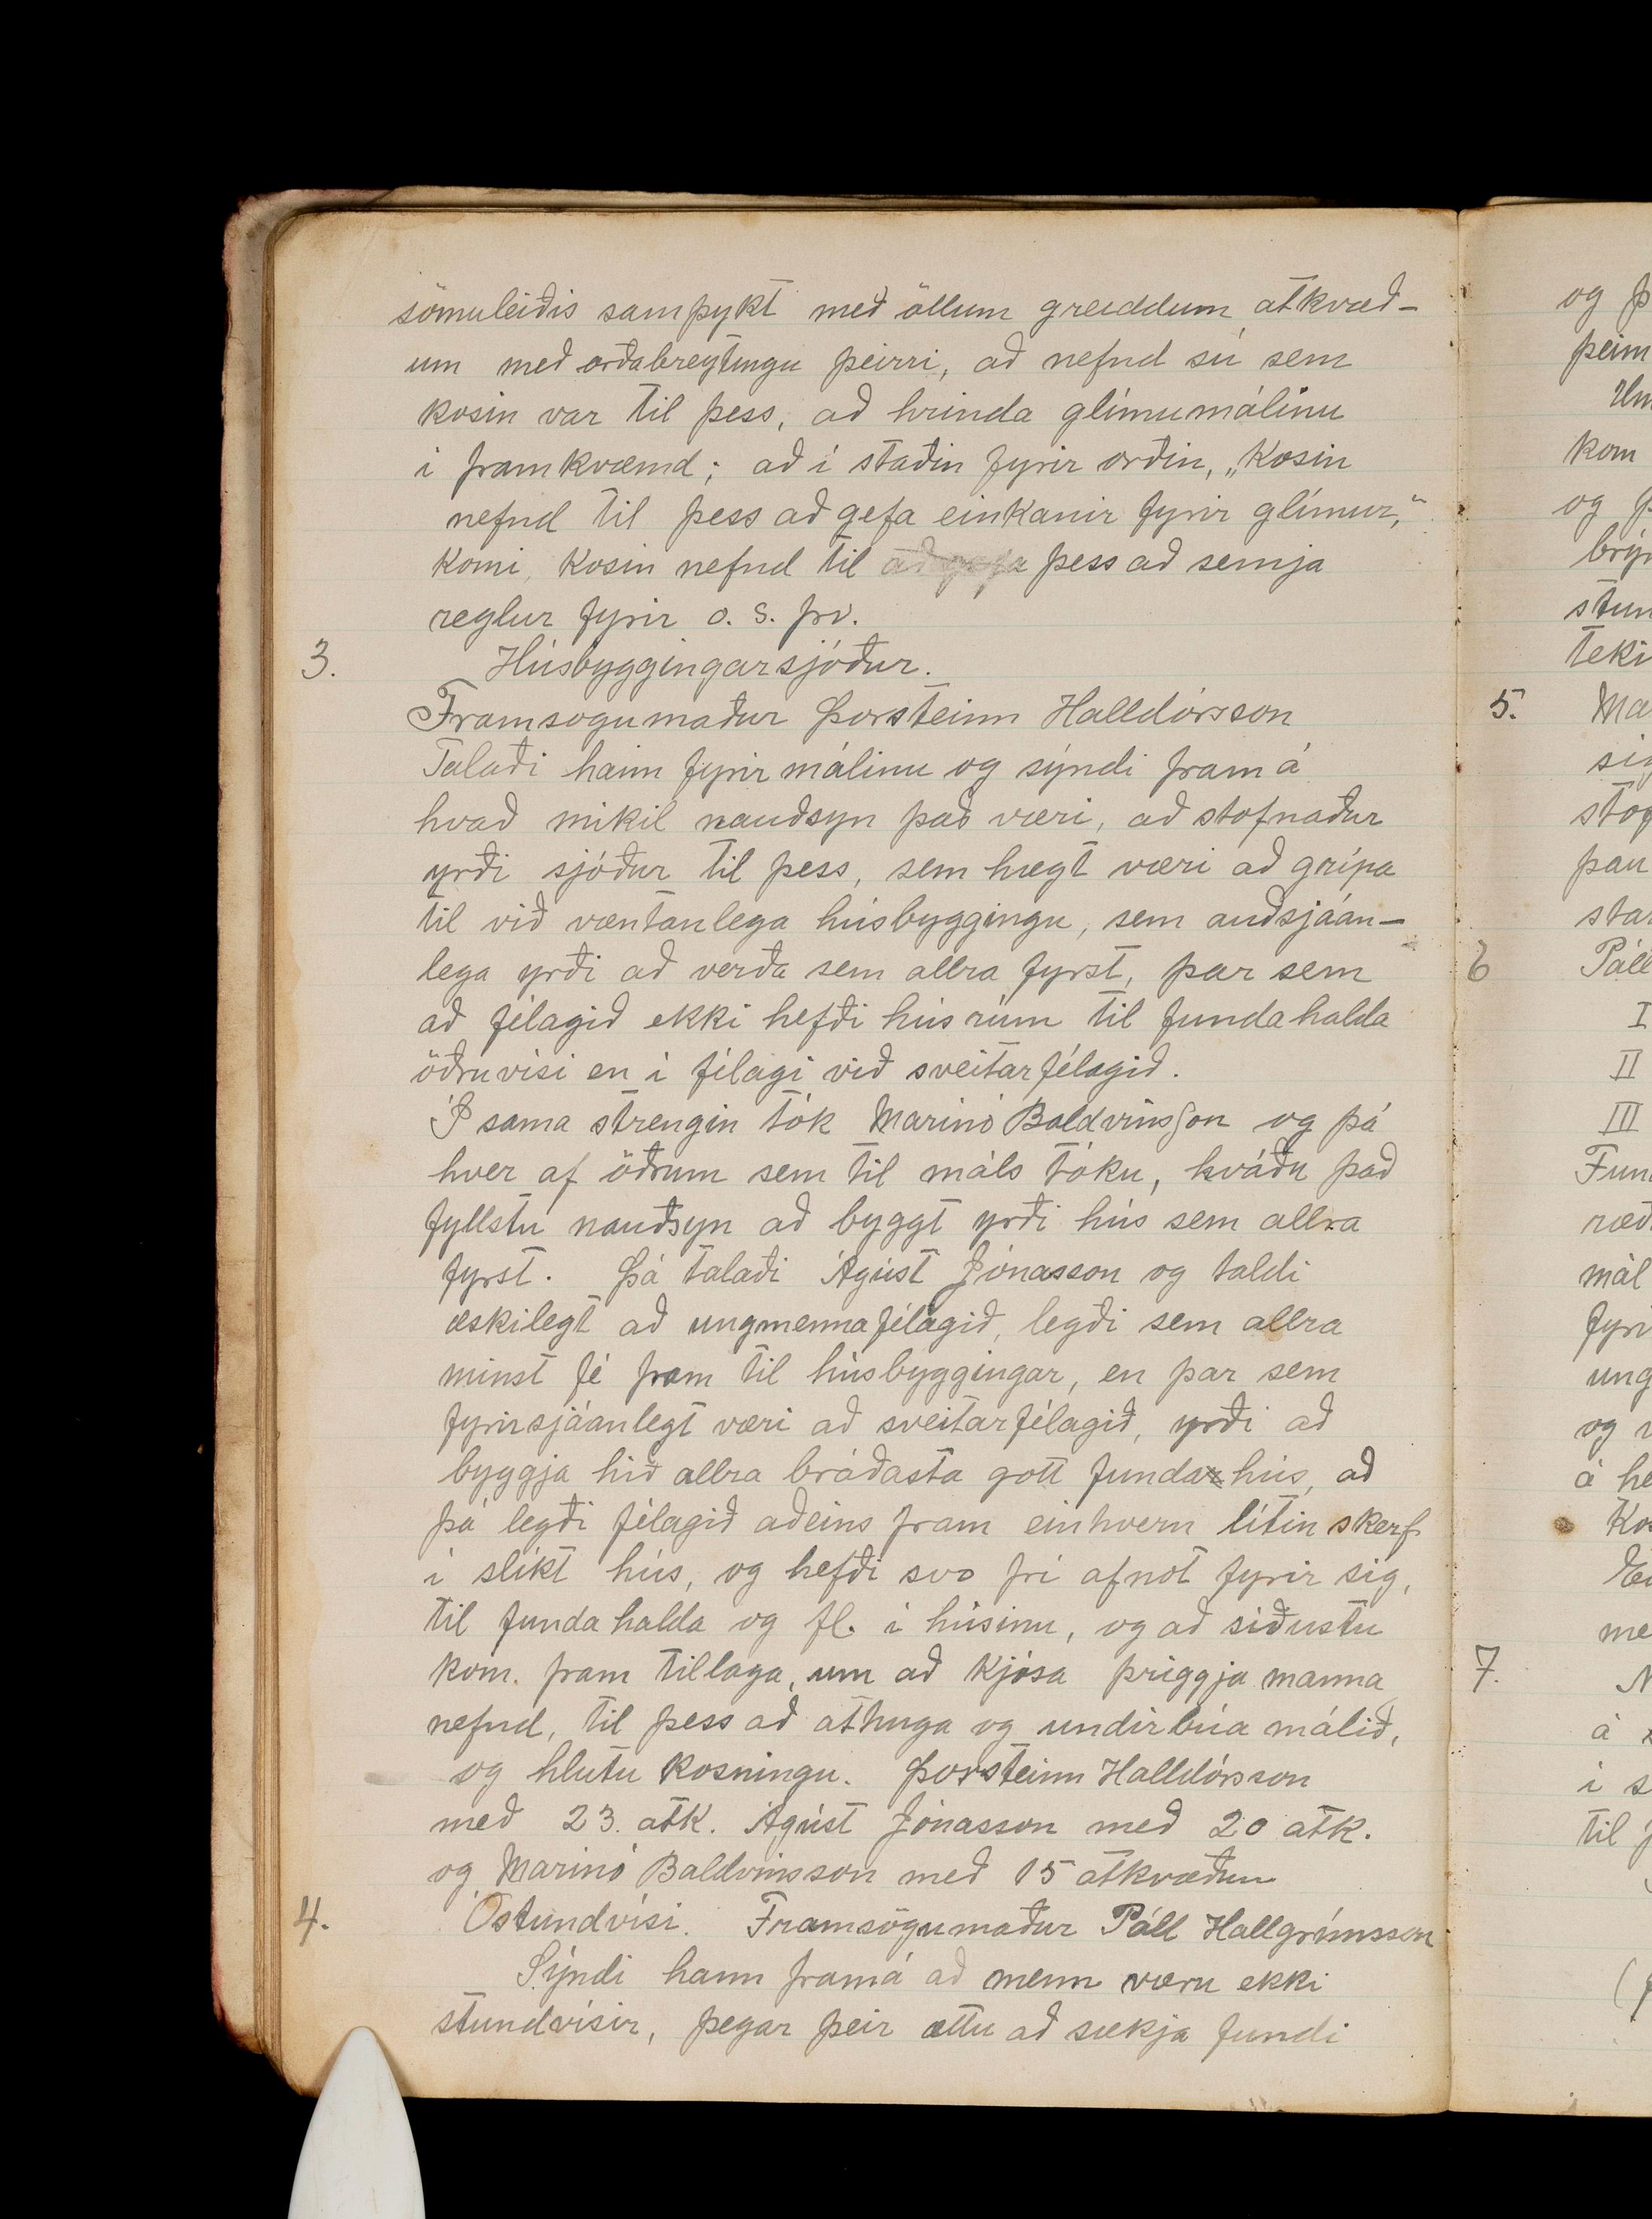 sömuleiðis samþykt með öllum greiddum atkvæð-
um með orðabreytingu þeirri, að nefnd sú sem
kosin var til þess, að hrinda glímumálinu
í framkvæmd; að í staðin fyrir orðin, „kosin
nefnd til þess að gefa einkanir fyrir glímur,“
komi, kosin nefnd til að gefa þess að semja
reglur fyrir o. s. frv.
3. Húsbyggingarsjóður.
Framsogumaður Þorsteinn Halldórsson
Talaði hann fyrir málinu og sýndi fram á
hvað mikil nauðsyn það væri, að stofnaður
yrði sjóður til þess, sem hægt væri að grípa
til við væntanlega húsbyggingu, sem auðsjáan-
lega yrði að verða sem allra fyrst, þar sem
að félagið ekki hefði húsrúm til fundahalda
öðruvísi en í félagi við sveitarfélagið.
Í sama strengin tók Marinó Baldvinsson og þá
hver af öðrum sem til máls tóku, kváðu það
fyllstu nauðsyn að byggt yrði hús sem allra
fyrst. Þá talaði Ágúst Jónasson og taldi
æskilegt að ungmennafélagið, legði sem allra
minst fé fram til húsbyggingar, en þar sem
fyrirsjáanlegt væri að sveitarfélagið, yrði að
byggja hið allra bráðasta gott fundarhús, að
þá legði félagið aðeins fram einhvern lítin skerf
í slíkt hús, og hefði svo frí afnot fyrir sig,
til fundahalda og fl. í húsinu, og að síðustu
kom. fram tillaga, um að kjósa þriggja manna
nefnd, til þess að athuga og undirbúa málið,
og hlutu kosningu. Þorsteinn Halldórsson
með 23. atk. Ágúst Jónasson með 20 atk.
og Marinó Baldvinsson með 15 atkvæðum
4. Óstundvísi. Framsögumaður Páll Hallgrímsson
Sýndi hann framá að menn væru ekki
stundvísir, þegar þeir ættu að sækja fundi
og
þeim
kom
og
teki
5.
þau
6
I
II
III
mál
ung
og
á
7.
á
í
til